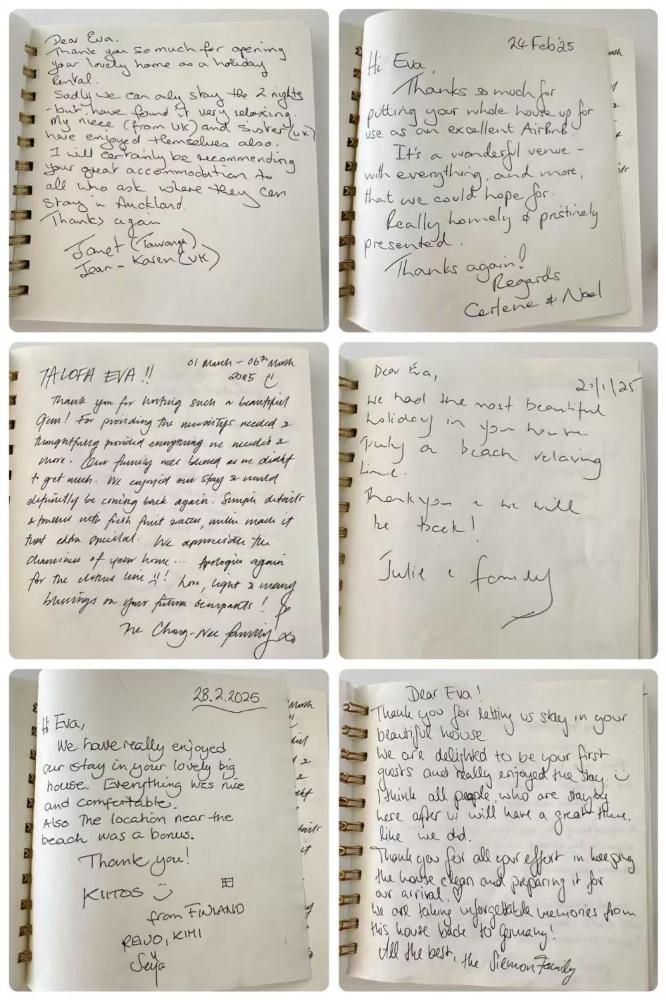 Dear Eva.
Thank you so much for opening
your lovely home as a holiday
Rental.
Sadly we can only stay the 2 nights
- but have found it very relaxing.
My niece (from UK) and Sister (UK)
have enjoyed themselves also.
I will certainly be recommending
your great accommodation to
all who ask where they can
stay in Auckland.
Thanks again
Janet
Jean - Karen (UK)
24 Feb '25
Hi Eva,
Thanks so much for
putting your whole house up for
use as an excellent AirBnB.
It's a wonderful venue -
with everything, and more,
that we could hope for.
Really homely & pristinely
presented.
Thanks again!
Regards
Carlene & Noel
01 March - 06th March
2025
TALOFA EVA !!
Thank you for hosting such a beautiful
Gem! For providing the necessitys needed &
thoughtfully provided everything we needed &
more. Our family was blessed as we didn't
to get much. We enjoyed our stay & would
definitely be coming back again. Simple details
& touches with fresh fruit & water, made it
that extra special. We appreciate the
cleanliness of your home... Apologies again
for the clothes line !! Love, light &
blessings on your future occupants !
The Chang-Nee family xo
Dear Eva,
21/1/25
We had the most beautiful
holiday in your house.
Truly a beach relaxing
time.
Thank you & we will
be back!
Julie & family
28.2.2025
Hi Eva,
We have really enjoyed
our stay in your lovely big
house. Everything was nice
and comfortable.
Also the location near the
beach was a bonus.
Thank you!
KIITOS
from FINLAND
REIJO, KIMI
Seija
Dear Eva!
Thank you for letting us stay in your
beautiful house.
We are delighted to be your first
guests and really enjoyed the stay.
I think all people, who are staying
here after us will have a great time,
like we did.
Thank you for all your effort in keeping
the house clean and preparing it for
our arrival.
We are taking unforgettable memories from
this house back to Germany!
All the best, the Siemon Family